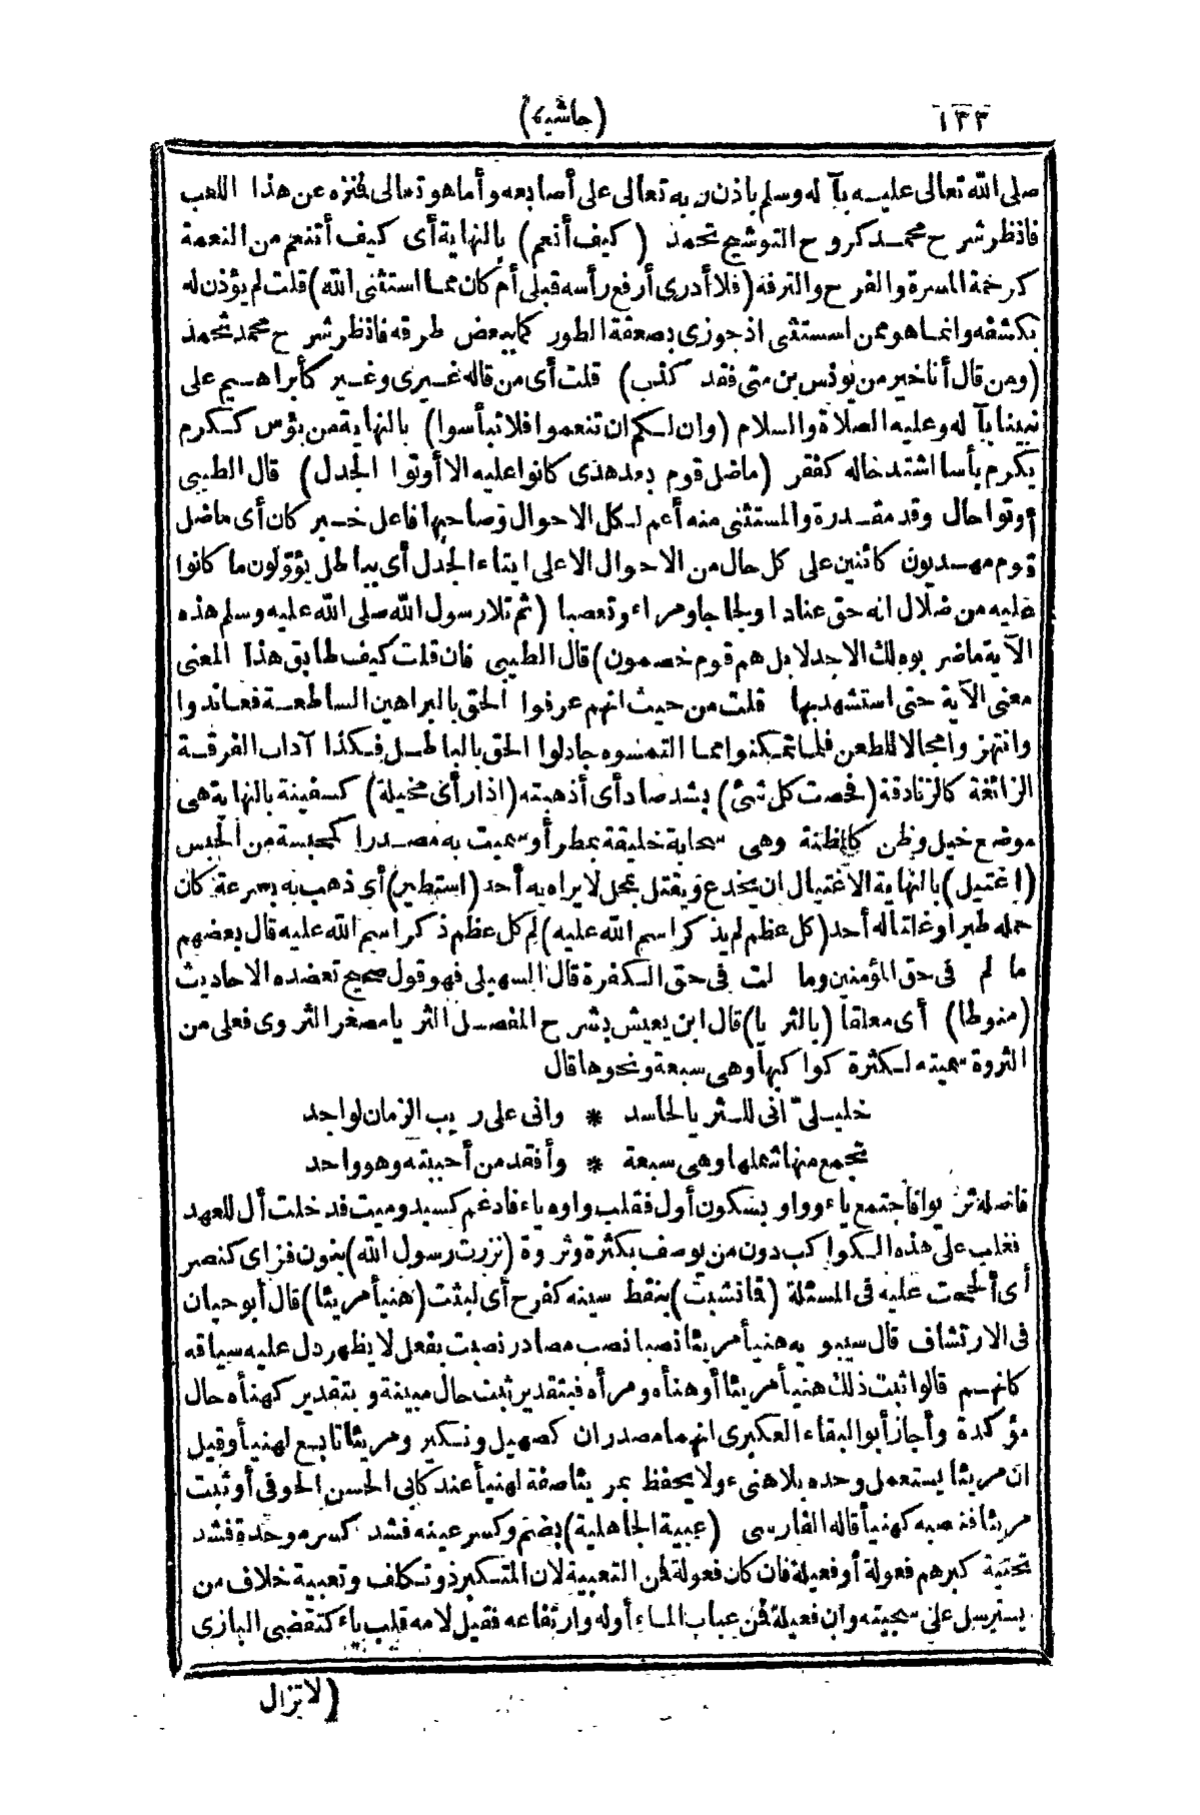 ١٣٣
(حاشية)
صلى الله تعالى عليه بآله وسلم باذن ربه تعالى على أصابعه وأما هو تعالى فمنزه عن هذا اللعب
فانظر شرح محمد كروح التوشيح نحمد (كيف أنعم) بالنهاية أى كيف أتنعم من النعمة
كرحمة المسرة والفرح والترفه (فلا أدرى أرفع رأسه قبلى أم كان مما استثنى الله) قلت لم يؤذن له
بكشفه وانما هو ممن استثنى اذ جوزى بصعقة الطور كما ببعض طرقه فانظر شرح محمد نحمد
(ومن قال أنا خير من يونس بن متى فقد كذب) قلت أى من قاله غيرى وغير كأبراهيم على
نبينا بآله وعليه الصلاة والسلام (وان لكم ان تنعموا فلا تبأسوا) بالنهاية من بؤس ككرم
يكرم بأسا اشتد حاله كفقر (ما ضل قوم بعد هدى كانوا عليه الا أوتوا الجدل) قال الطيبى
أوتوا حال وقد مقدرة والمستثنى منه أعم لكل الاحوال وصاحبها فاعل خبر كان أى ما ضل
قوم مهديون كائنين على كل حال من الاحوال الا على ايتاء الجدل أى بباطل يؤولون ما كانوا
عليه من ضلال انه حق عنادا ولجاجا ومراء وتعصبا (ثم تلا رسول الله صلى الله عليه وسلم هذه
الآية ما ضربوه لك الا جدلا بل هم قوم خصمون) قال الطيبى فان قلت كيف طابق هذا المعنى
معنى الآية حتى استشهد بها قلت من حيث انهم عرفوا الحق بالبراهين الساطعة فعاندوا
وانتهزوا مجالا للطعن فلما تمكنوا مما التمسوه جادلوا الحق بالباطل فكذا آداب الفرقة
الزائغة كالزنادقة (فحصت كل شئ) بشد صاد أى أذهبته (اذا رأى مخيلة) كسفينة بالنهاية هى
موضع خيل وظن كالمظنة وهى سحابة خليقة بمطر أو سميت به مصدرا كمحبسة من الحبس
(اغتيل) بالنهاية الاغتيال ان يخدع ويقتل بمحل لا يراه به أحد (استطير) أى ذهب به بسرعة كان
حمله طير أو غاتاله أحد (كل عظم لم يذكر اسم الله عليه) لم كل عظم ذكر اسم الله عليه قال بعضهم
ما لم فى حق المؤمنين وما لت فى حق الكفرة قال السهيلى فهو قول صحيح تعضده الاحاديث
(منوطا) أى معلقا (بالثريا) قال ابن يعيش بشرح المفصل الثريا مصغر الثروى فعلى من
الثروة سميته لكثرة كواكبها وهى سبعة ونحوها قال
خليلىّ انى للثريا لحاسد * وانى على ريب الزمان لواجد
تجمع منها شملها وهى سبعة * وأفقد من أحببته وهو واحد
فاصله ثريوا فاجتمع ياء وواو بسكون أول فقلب واوه ياء فادغم كسيد وميت قد خلت أل للعهد
فغلب على هذه الكواكب دون من يوصف بكثرة وثروة (نزرت رسول الله) بنون فزاى كنصر
أى ألححت عليه فى المسئلة (فانشبت) بنقط سينه كفرح أى لبثت (هنيأ مريئا) قال أبو حيان
فى الارتشاف قال سيبويه هنيأ مريئا نصبا نصب مصادر نصبت بفعل لا يظهر دل عليه سياقه
كانهم قالوا ثبت ذلك هنيأ مريئا أو هنأه ومرأه فبتقدير ثبت حال مبينة وبتقدير كهنأه حال
مؤكدة وأجاز أبو البقاء العكبرى انهما مصدران كصهيل ونكير ومريئا تابع لهنيأ وقيل
ان مريئا يستعمل وحده بلا هنىء ولا يحفظ بمريئا صفة لهنيأ عند كابى الحسن الحوفى أو ثبت
مريئا فنصبه كهنيأ قاله الفارسى (عبية الجاهلية) بضم وكسر عينه فشد كسر موحدة فشد
تحتية كبرهم فعولة أو فعيلة فان كان فعولة فمن التعبية لان المتكبر ذو تكلف وتعبية خلاف من
يسترسل على سجيته وان فعيلة فمن عباب الماء أوله وارتفاعه فقيل لامه قلب ياء كتقضى البازى
(لا تزال